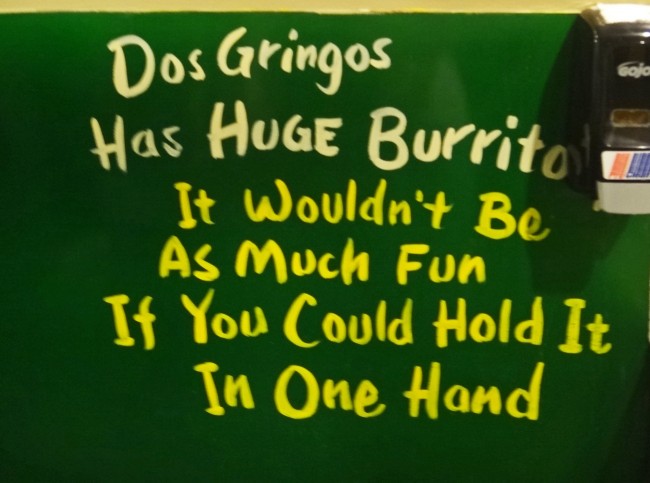 Dos Gringos
Has HUGE Burrito
It Wouldn't Be
As Much Fun
If You Could Hold It
In One Hand
GOJO